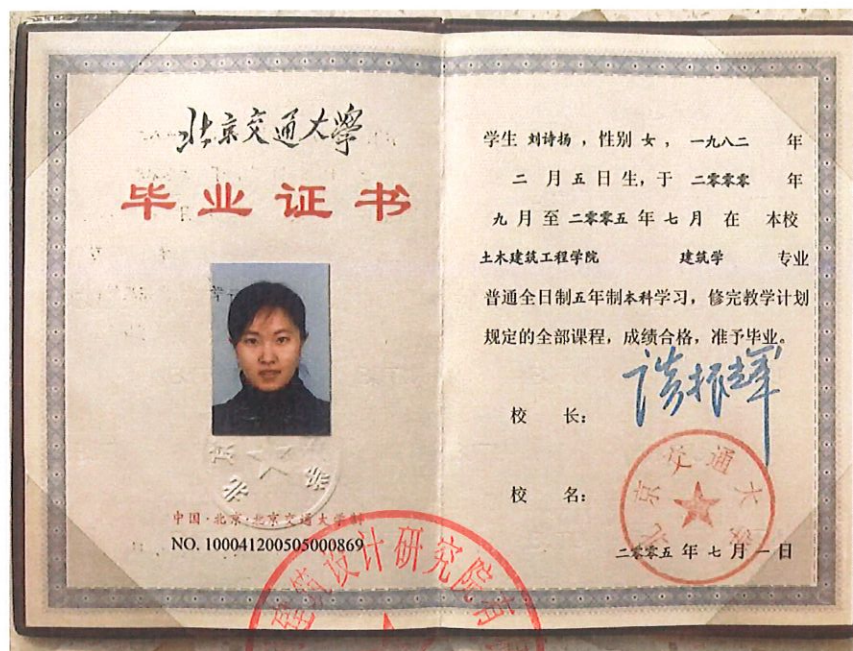 北京交通大學
毕业证书
中国·北京·北京交通大学制
NO. 100041200505000869
学生 刘诗扬，性别 女， 一九八二 年
二 月 五 日 生，于 二零零零 年
九 月 至 二零零五 年 七 月 在 本校
土木建筑工程学院 建筑学 专业
普通全日制五年制本科学习，修完教学计划
规定的全部课程，成绩合格，准予毕业。
校 长：
校 名：
北京交通大学
二零零五 年 七 月 一 日
建筑设计研究院有